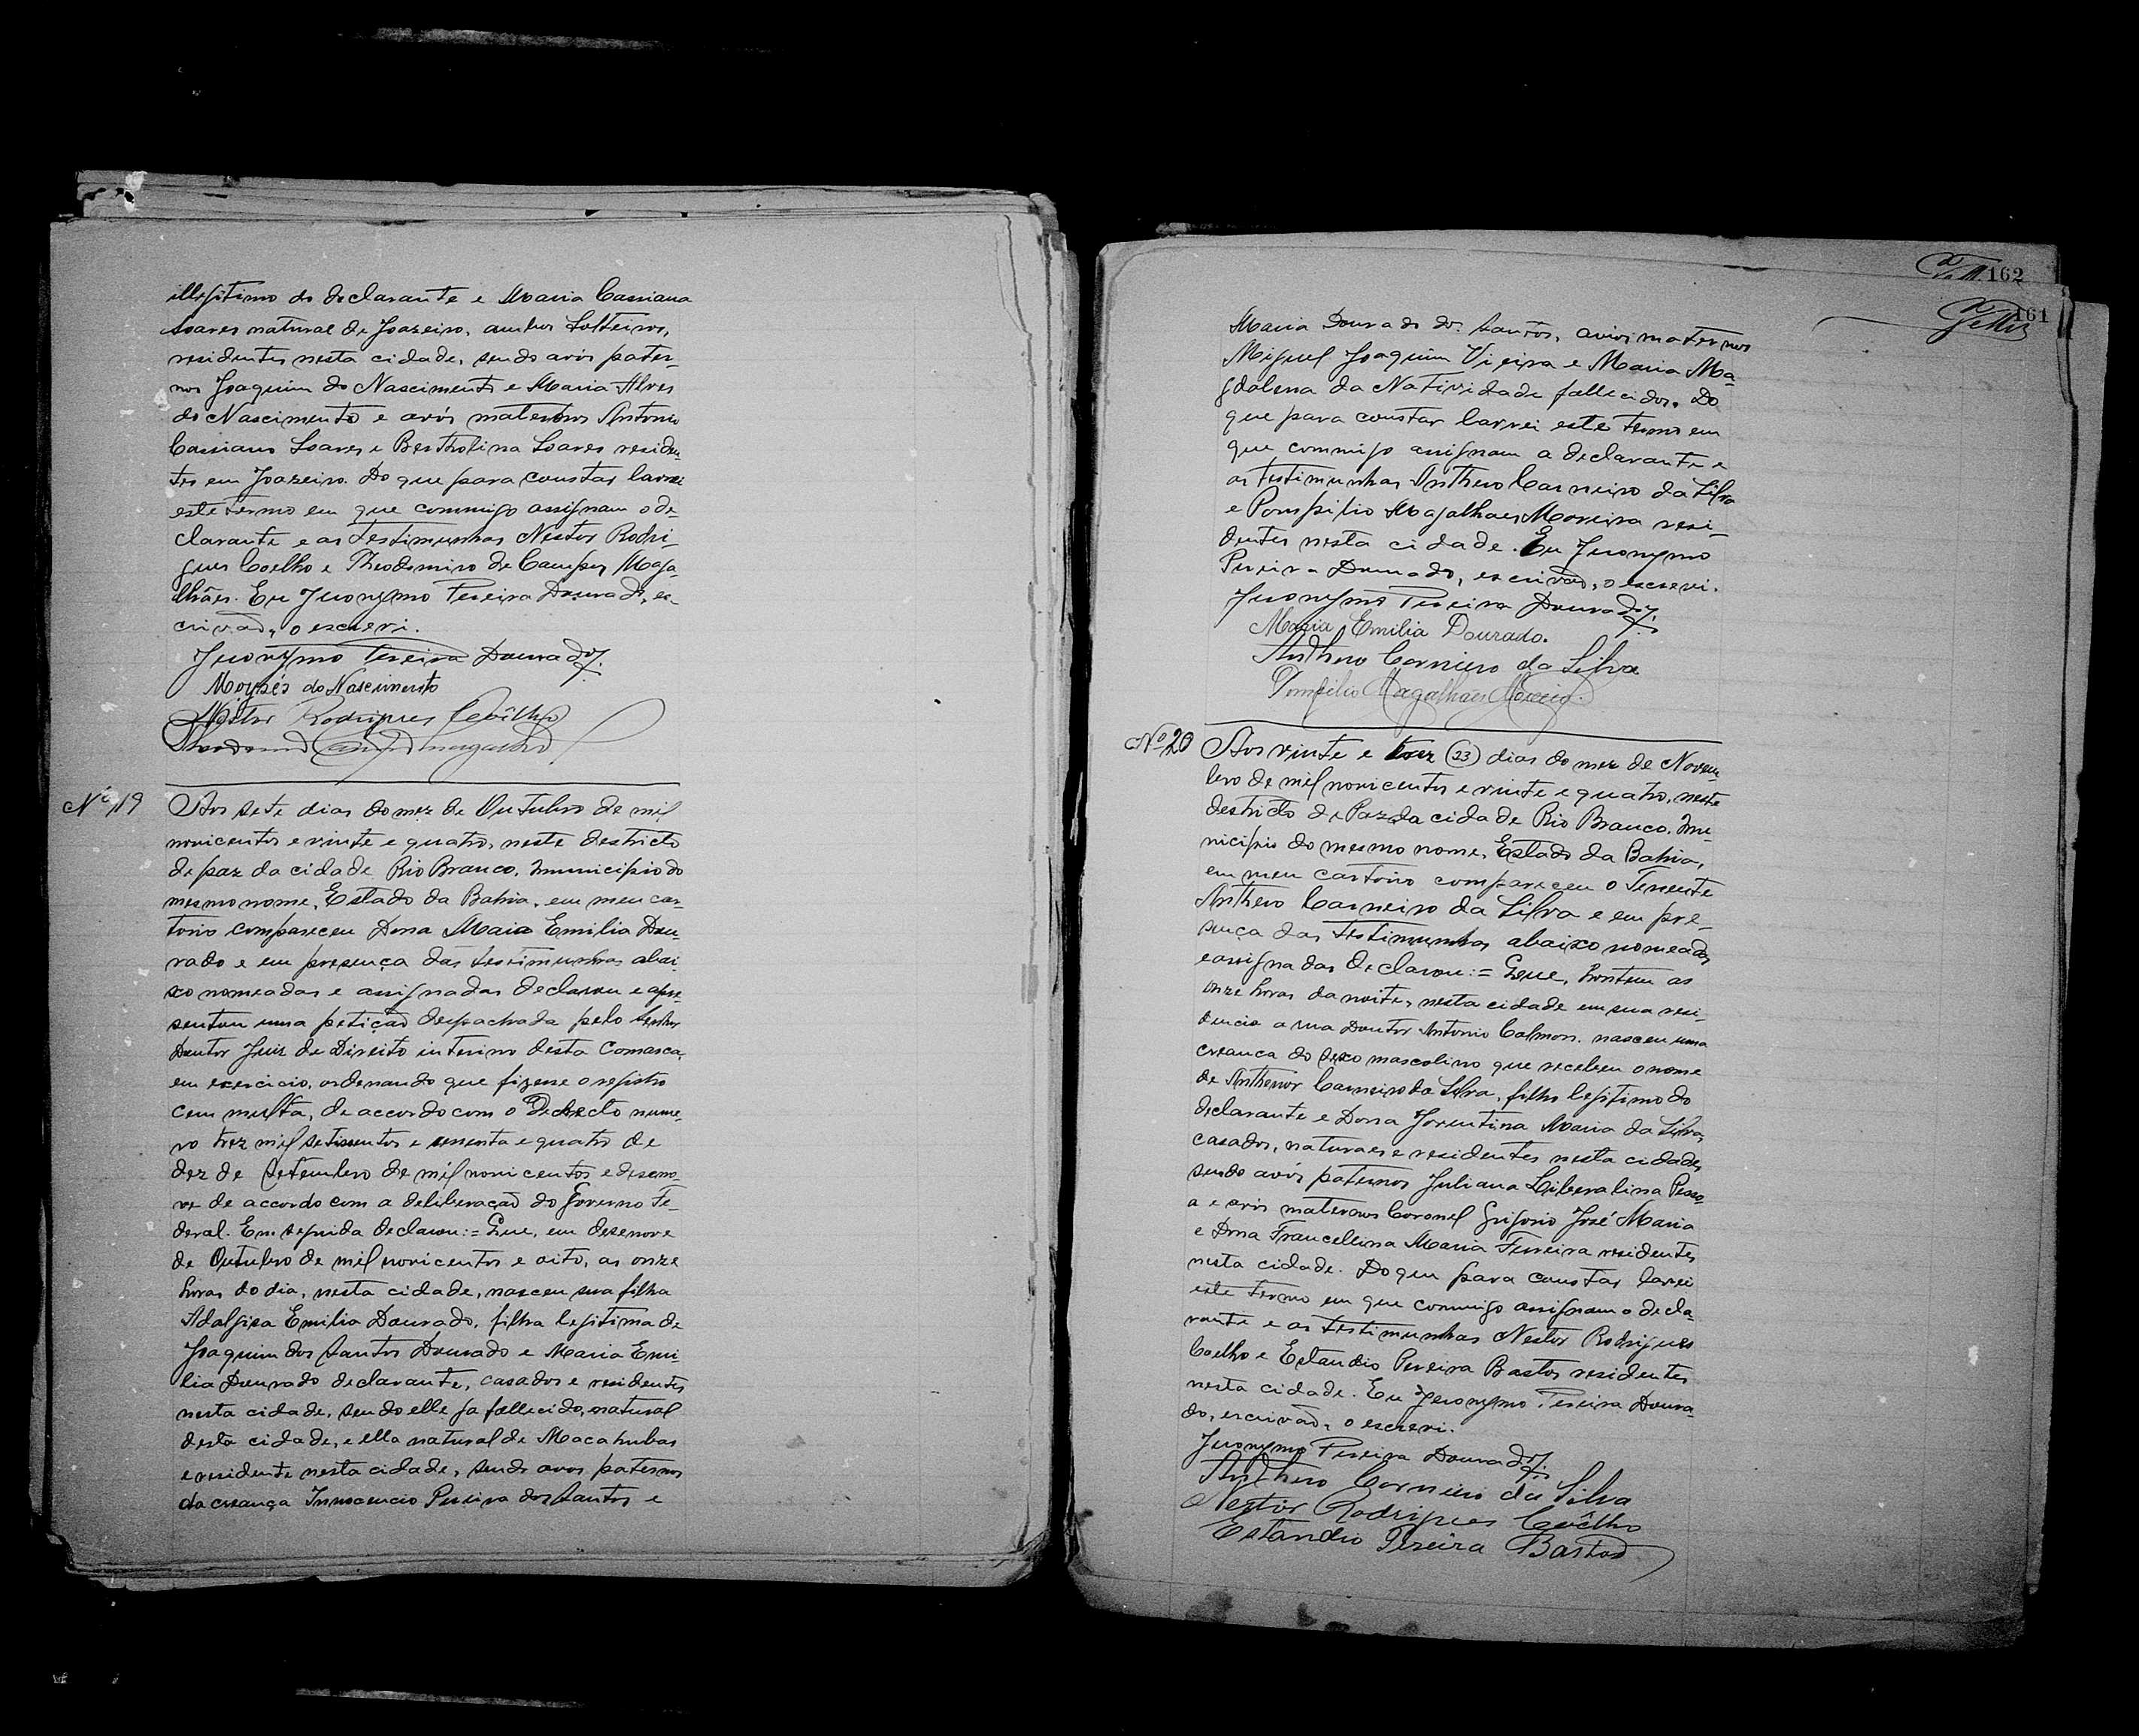 illegitimo do declarante e Maria Cassiana
Soares natural de Joazeiro, ambos Solteiros,
residentes nesta cidade, sendo avós pater-
nos Joaquim do Nascimento e Maria Alves
do Nascimento e avós maternos Antonio
Cassiano Soares e Bertholina Soares residen-
tes em Joazeiro. Do que para constar lavrei
este termo em que commigo assignam o de-
clarante e as testimunhas Nestor Rodri-
gues Coelho e Theodomiro de Campos Maga-
lhães. Eu Jeronymo Pereira Dourado, es-
crivão, o escrevi.
Jeronymo Pereira Dourado
Moysés do Nascimento
Nestor Rodrigues Coêlho
Nº 19
Aos sete dias do mez de Outubro de mil
novicentos e vinte e quatro, neste destricto
de paz da cidade Rio Branco, municipio do
mesmo nome, Estado da Bahia, em meu car-
torio compareceu Dona Maria Emilia Dou-
rado e em presença das testimunhas abai-
xo nomeadas e assignadas declarou e apre-
sentou uma petição despachada pelo Senhor
Doutor Juiz de Direito interino desta Comarca,
em exercicio, ordenando que fizesse o registro
cem multa, de accordo com o Decreto nume-
ro trez mil setissentos e sessenta e quatro de
dez de Setembro de mil novicentos e deseno-
ve de accordo com a deliberação do Governo Fe-
deral. Em seguida declarou:= Que, em desenove
de Outubro de mil novicentos e oito, as onze
horas do dia, nesta cidade, nasceu sua filha
Adalgisa Emilia Dourado, filha legitima de
Joaquim dos Santos Dourado e Maria Emi-
lia Dourado declarante, casados e residentes
nesta cidade, sendo elle ja fallecido, natural
desta cidade, e ella natural de Macahubas
e residente nesta cidade, sendo avos paternos
da creança Innocencio Pereira dos Santos e
162
161
Maria Dourado dos Santos, avios maternos
Miguel Joaquim Vieira e Maria Ma-
gdalena da Natividade fallecidos. Do
que para constar lavrei este termo em
que commigo assignam a declarante e
as testimunhas Anthero Carneiro da Silva
e Pompilio Magalhaes Moreira resi-
dentes nesta cidade. Eu Jeronymo
Pereira Dourado, escrivão, o escrevi.
Jeronymo Pereira Dourado
Maria Emilia Dourado.
Anthero Carneiro da Silva
Pompilio Magalhães Moreira.
Nº 20
Aos vinte e trez (23) dias do mez de Novem-
bro de mil novicentos e vinte e quatro, neste
destricto de Paz da cidade Rio Branco, mu-
nicipio do mesmo nome, Estado da Bahia,
em meu cartorio compareceu o Tenente
Anthero Carneiro da Silva e em pre-
sença das testimunhas abaixo nomeadas
e assignadas declarou:= Que, hontem as
onze horas da noite, nesta cidade em sua resi-
dencia a rua Doutor Antonio Calmon, nasceu uma
creanca do sexo mascolino que recebeu o nome
de Anthenor Carneiro da Silva, filho legitimo do
declarante e Dona Joventina Maria da Silva,
casados, naturaes e residentes nesta cidade,
sendo avós paternos Juliana Liberalina Pesso-
a e avós maternos Coronel Grigorio José Maria
e Dona Francellina Maria Ferreira residentes
nesta cidade. Do que para constar lavrei
este termo em que commigo assignam o decla-
rante e as testimunhas Nestor Rodrigues
Coelho e Estandio Pereira Bastos residentes
nesta cidade. Eu Jeronymo Pereira Doura-
do, escrivão, o escrevi.
Jeronymo Pereira Dourado
Anthero Carneiro da Silva
Nestor Rodrigues Coêlho
Estandio Pereira Bastos